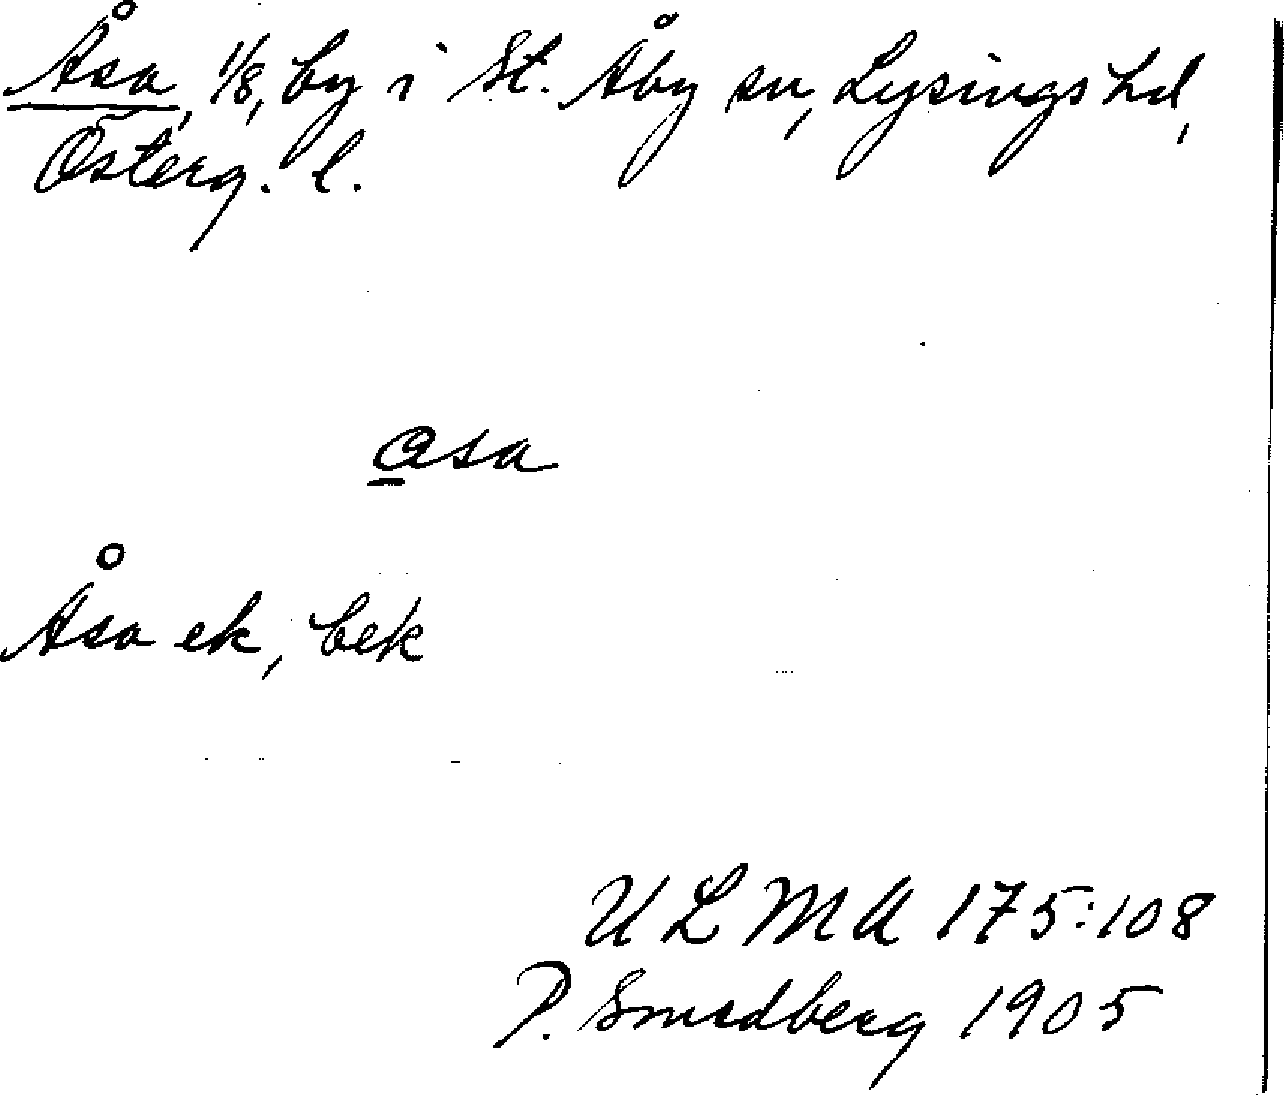 Åsa, 1/8, by i St. Åby sn, Lysings hd,
Österg. l.
asa
Åsa ek, bek
ULMA 175:108
P. Smedberg 1905